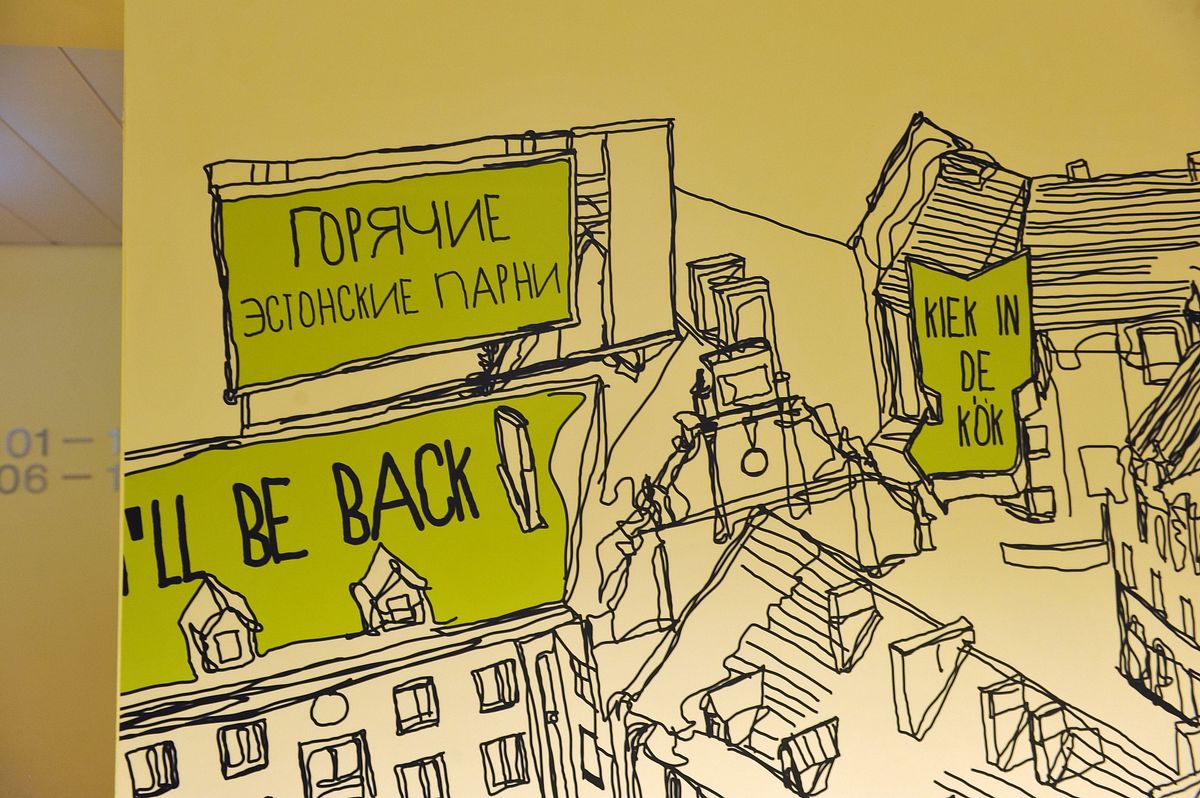 ГОРЯЧИЕ
ЭСТОНСКИЕ ПАРНИ
KIEK IN
DE
KÖK
I'LL BE BACK
01 – 1
06 – 1